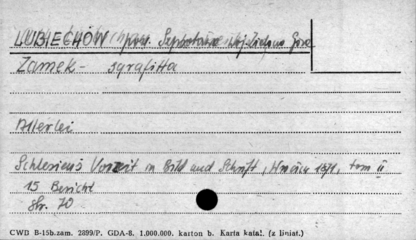 LUBIECHÓW (pow. Świebodzin woj. Zielona Góra
Zamek - sgrafitta
Allerlei
Schlesiens Vorzeit in Bild und Schrift, 1871, tom II
15 Bericht
Str. 70
CWD B-15b.zam. 2899/P. GDA-8. 1.000.000. karton b. Karta katal. (z liniat.)